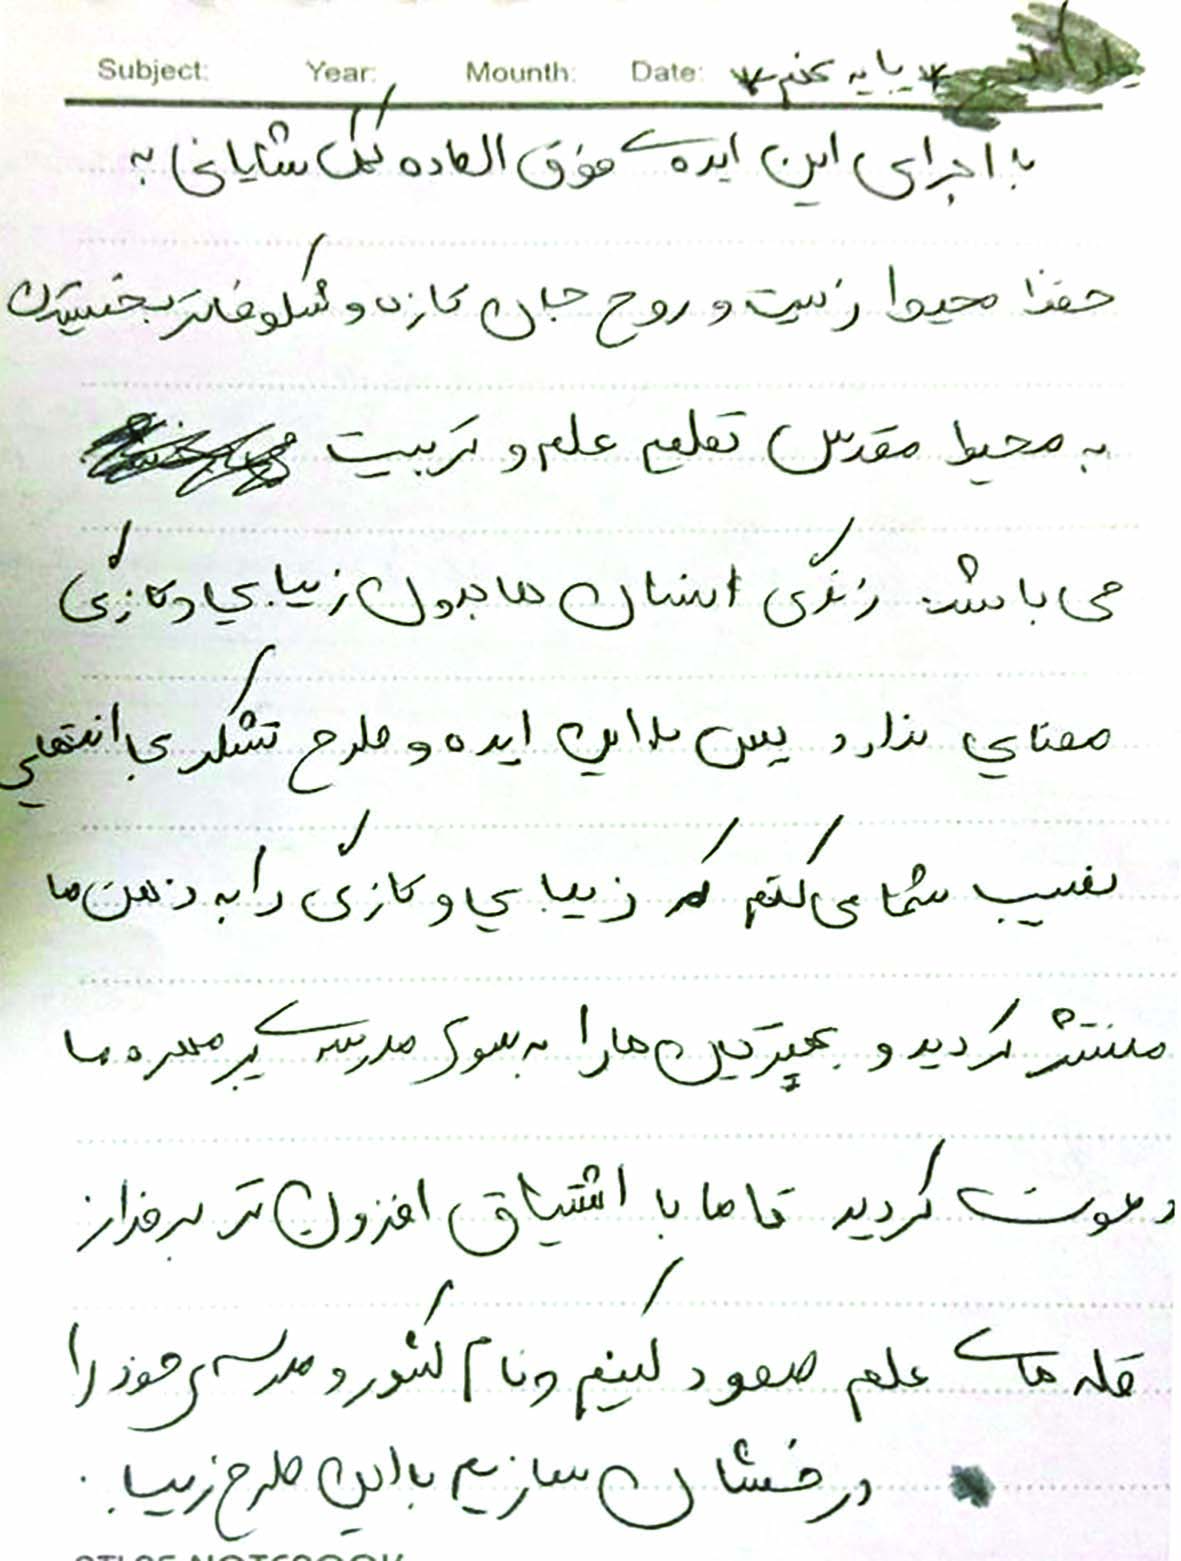 Subject: Year: Mounth: Date: * پایه نهم *
با اجرای این ایده ی فوق العاده کمک شایانی به
حفظ محیط زیست و روح جان تازه و شکوفاتر بخشیدن
به محیط مقدس تعلیم علم و تربیت
می باشد زندگی انسان ها بدون زیبایی و تازگی
معنایی ندارد پس با این ایده و طرح تشکری با انتهایی
نصیب شما می کنم که زیبایی و تازگی را به ذهن ما
منتشر کردید و بهترین ها را به سوی مدرسه ی پر مهره ما
دعوت کردید تا ما با اشتیاق افزون تر بر فراز
قله های علم صعود کنیم و نام کشور و مدرسه ی خود را
درخشان سازیم با این طرح زیبا.